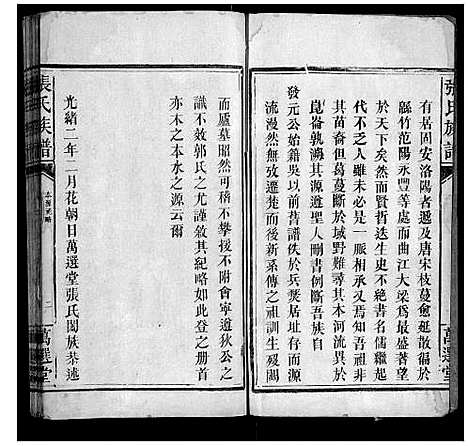 張氏族譜
萬選堂
有居固安洛陽者遞及唐宋枝蔓愈延散徧於
縣竹范陽永豐等處而曲江大梁爲最盛著望
於天下矣然而賢哲迭生史不絶書名儒繼起
代不乏人雖未必是一脈相承又焉知吾祖非
其苗裔但葛蔓斷於域野難尋其本河流異於
崑崙孰溯其源遵聖人刪書例斷吾族自
發元公始籍吳以前舊譜佚於兵燹居址存而源
流漫然無攷遷楚而後新系傳之祖訓生殘闕
而廬墓昭然可稽不附會寧遵狄公之
識不效郭氏之尤謹敘其紀略如此登之册首
亦木之本水之源云爾
光緒二年二月花朝日萬選堂張氏閤族恭述
張氏族譜
本源紀略
二
萬選堂